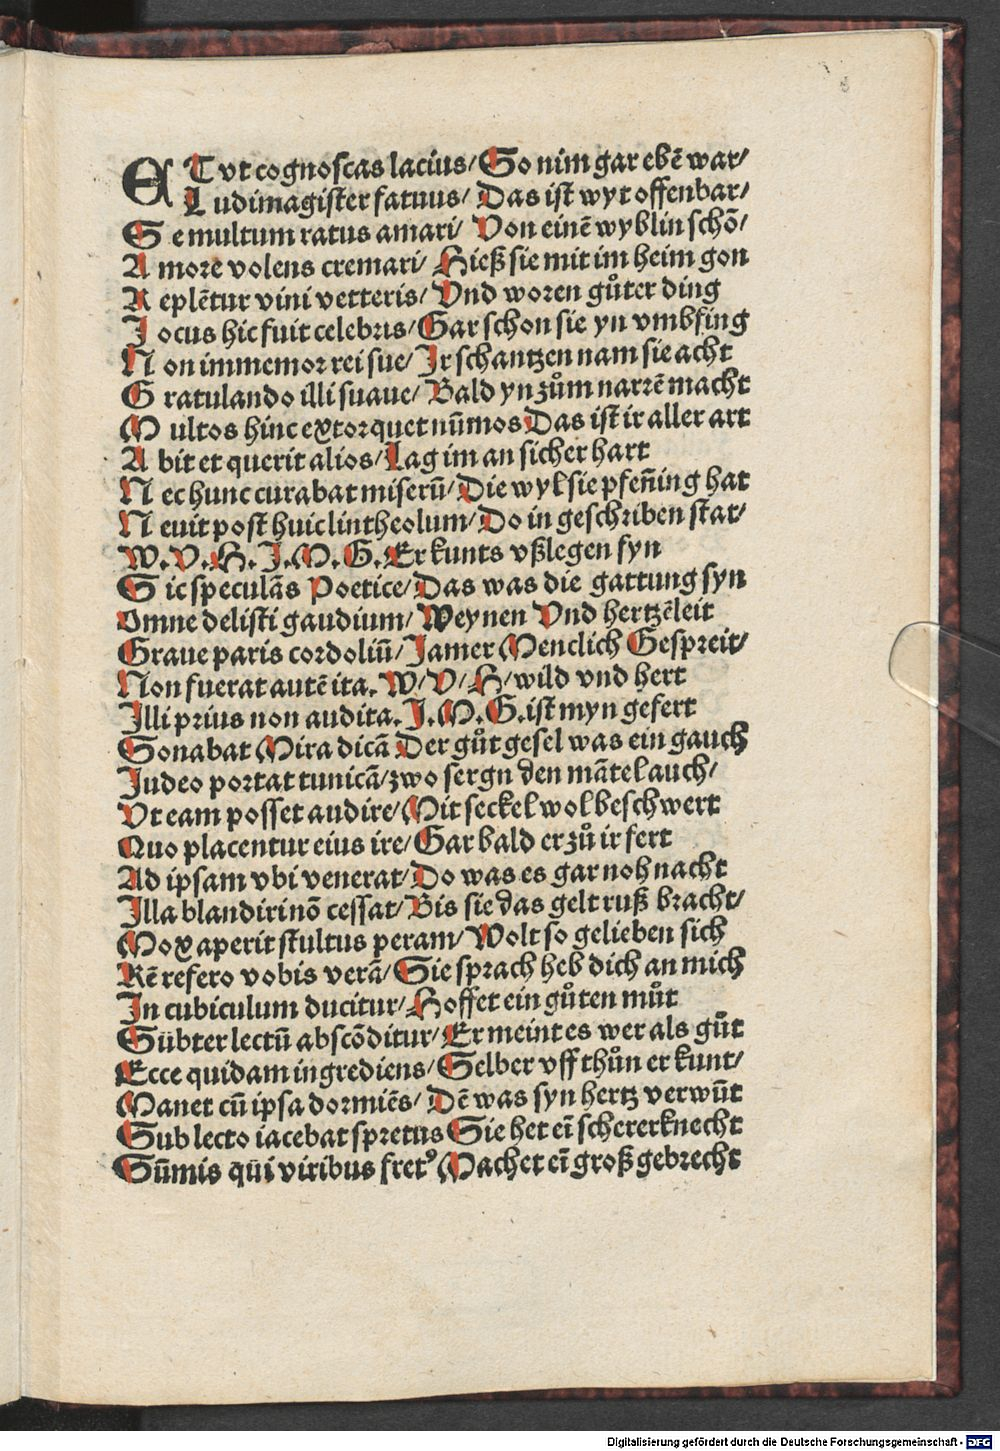 AT vt cognoscas lacius/ So nim gar ebē war/
Ludimagister fatuus/ Das ist wyt offenbar/
Se multum ratus amari/ Von einē wyblin schō/
Amore volens cremari/ Hieß sie mit im heim gon
Replētur vini vetteris/ Vnd woren gůter ding
Jocus hic fuit celebris/ Gar schon sie yn vmbfing
Non immemor rei sue/ Jr schantzen nam sie acht
Gratulando illi suaue/ Bald yn zům narrē macht
Multos hinc extorquet nūmos Das ist ir aller art
Abit et querit alios/ Lag im an sicher hart
Nec hunc curabat miserū/ Die wyl sie pfeñing hat
Neuit post huic lintheolum/ Do in geschriben stat/
W.V.H.J.M.G. Er kunts vßlegen fyn
Sic speculās Poetice/ Das was die gattung syn
Omne delisti gaudium/ Weynen Vnd hertzēleit
Graue paris cordoliū/ Jamer Menclich Gespreit/
Non fuerat autē ita. W/V/H/ wild vnd hert
Illi prius non audita. J.M.G. ist myn gefert
Sonabat Mira dicā Der gůt gesel was ein gauch
Judeo portat tunicā/ zwo sergn den mātel auch/
Vt eam posset audire/ Mit seckel wol beschwert
Quo placentur eius ire/ Gar bald er zů ir fert
Ad ipsam vbi venerat/ Do was es gar noh nacht
Illa blandiri nō cessat/ Bis sie das gelt ruß bracht/
Mox aperit stultus peram/ Wolt so gelieben sich
Rē refero vobis verā/ Sie sprach heb dich an mich
In cubiculum ducitur/ Hoffet ein gůten můt
Sübter lectū abscōditur/ Er meint es wer als gůt
Ecce quidam ingrediens/ Selber vff thůn er kunt/
Manet cū ipsa dormiēs/ Dē was syn hertz verwūt
Sub lecto iacebat spretus Sie het eī schererknecht
Sūmis qüi viribus fretꝰ Machet eī groß gebrecht
Digitalisierung gefördert durch die Deutsche Forschungsgemeinschaft - DFG